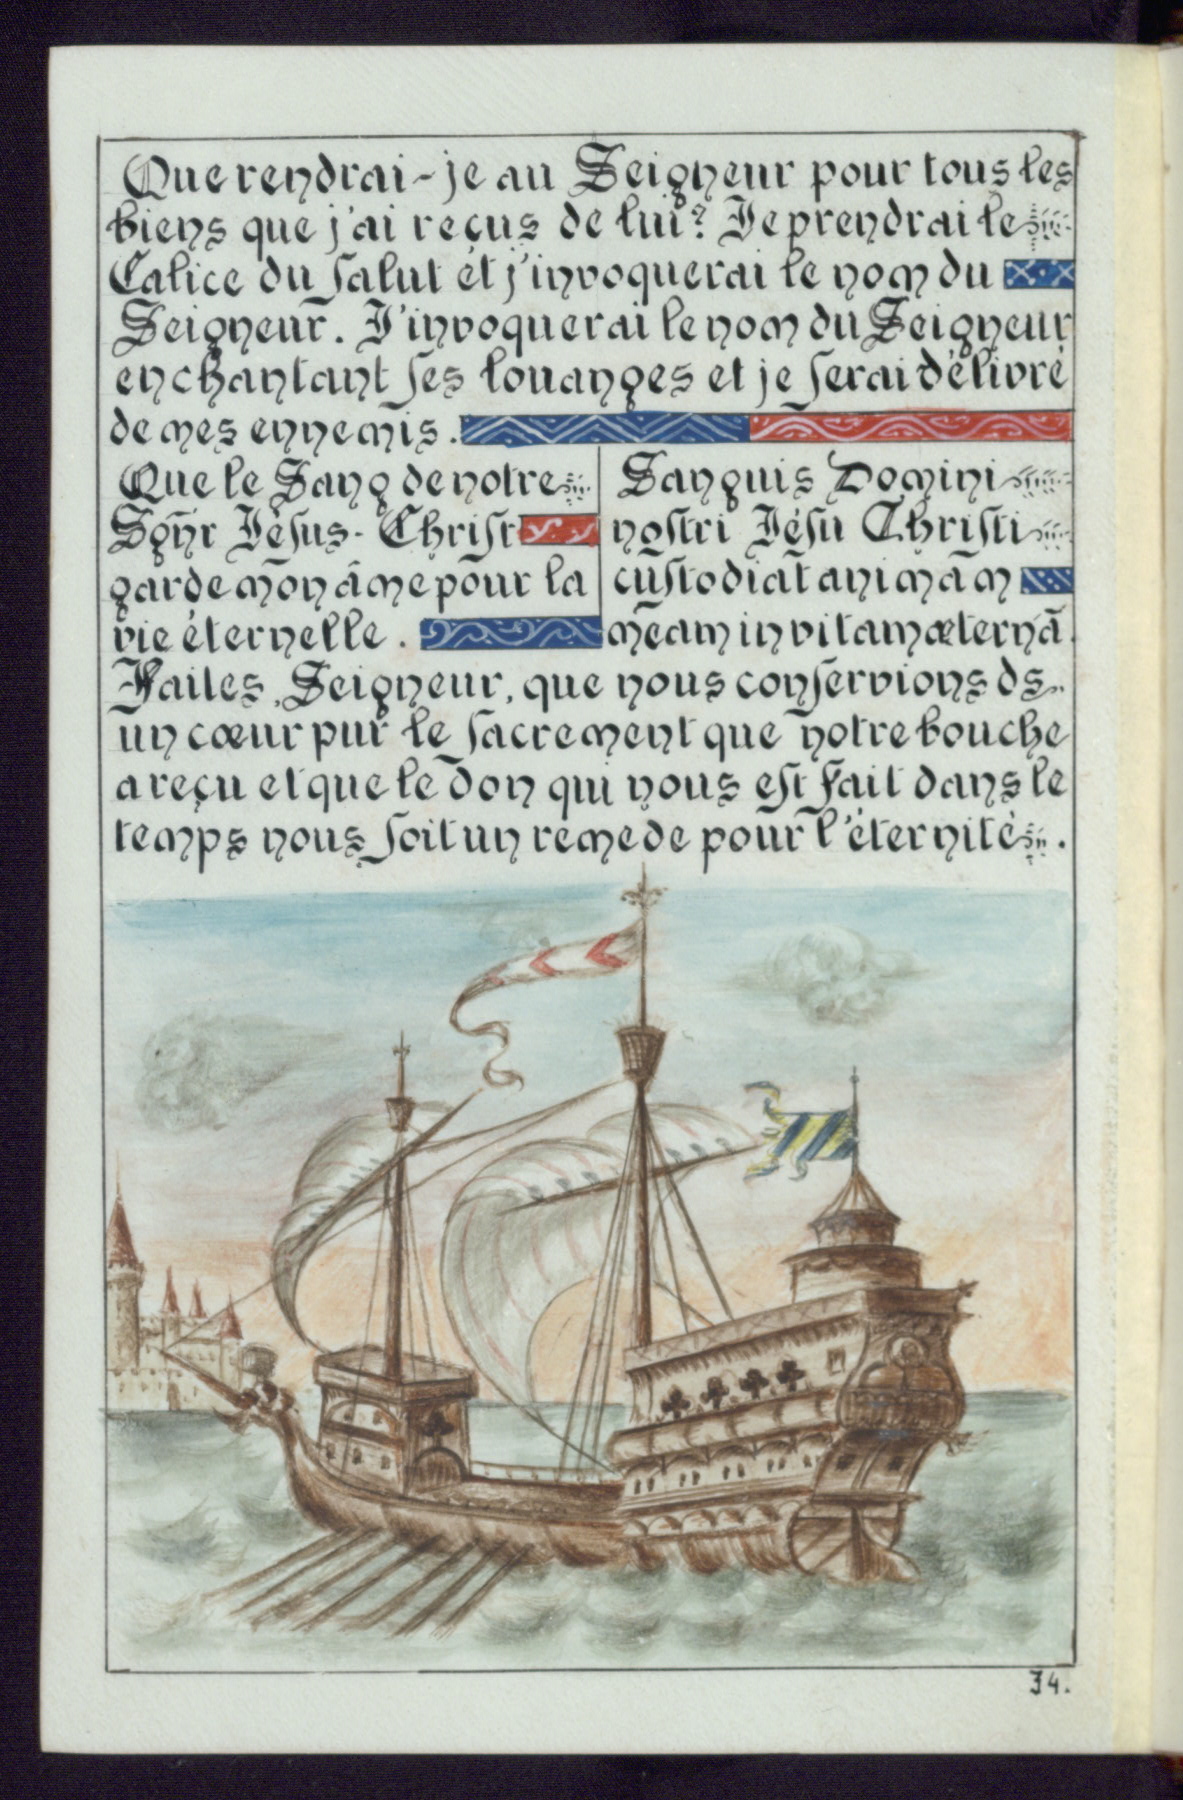 Que rendrai-je au Seigneur pour tous les
biens que j'ai reçus de lui? Je prendrai le
Calice du salut et j'invoquerai le nom du
Seigneur. J'invoquerai le nom du Seigneur
en chantant ses louanges et je serai délivré
de mes ennemis.
Que le Sang de notre
Sgñr Jésus-Christ
garde mon âme pour la
vie éternelle.
Sanguis Domini
nostri Jésu Christi
custodiat animam
meam in vitam æternã.
Faites, Seigneur, que nous conservions ds
un cœur pur le sacrement que notre bouche
a reçu et que le don qui nous est fait dans le
temps nous soit un remede pour l'éternité.
34.